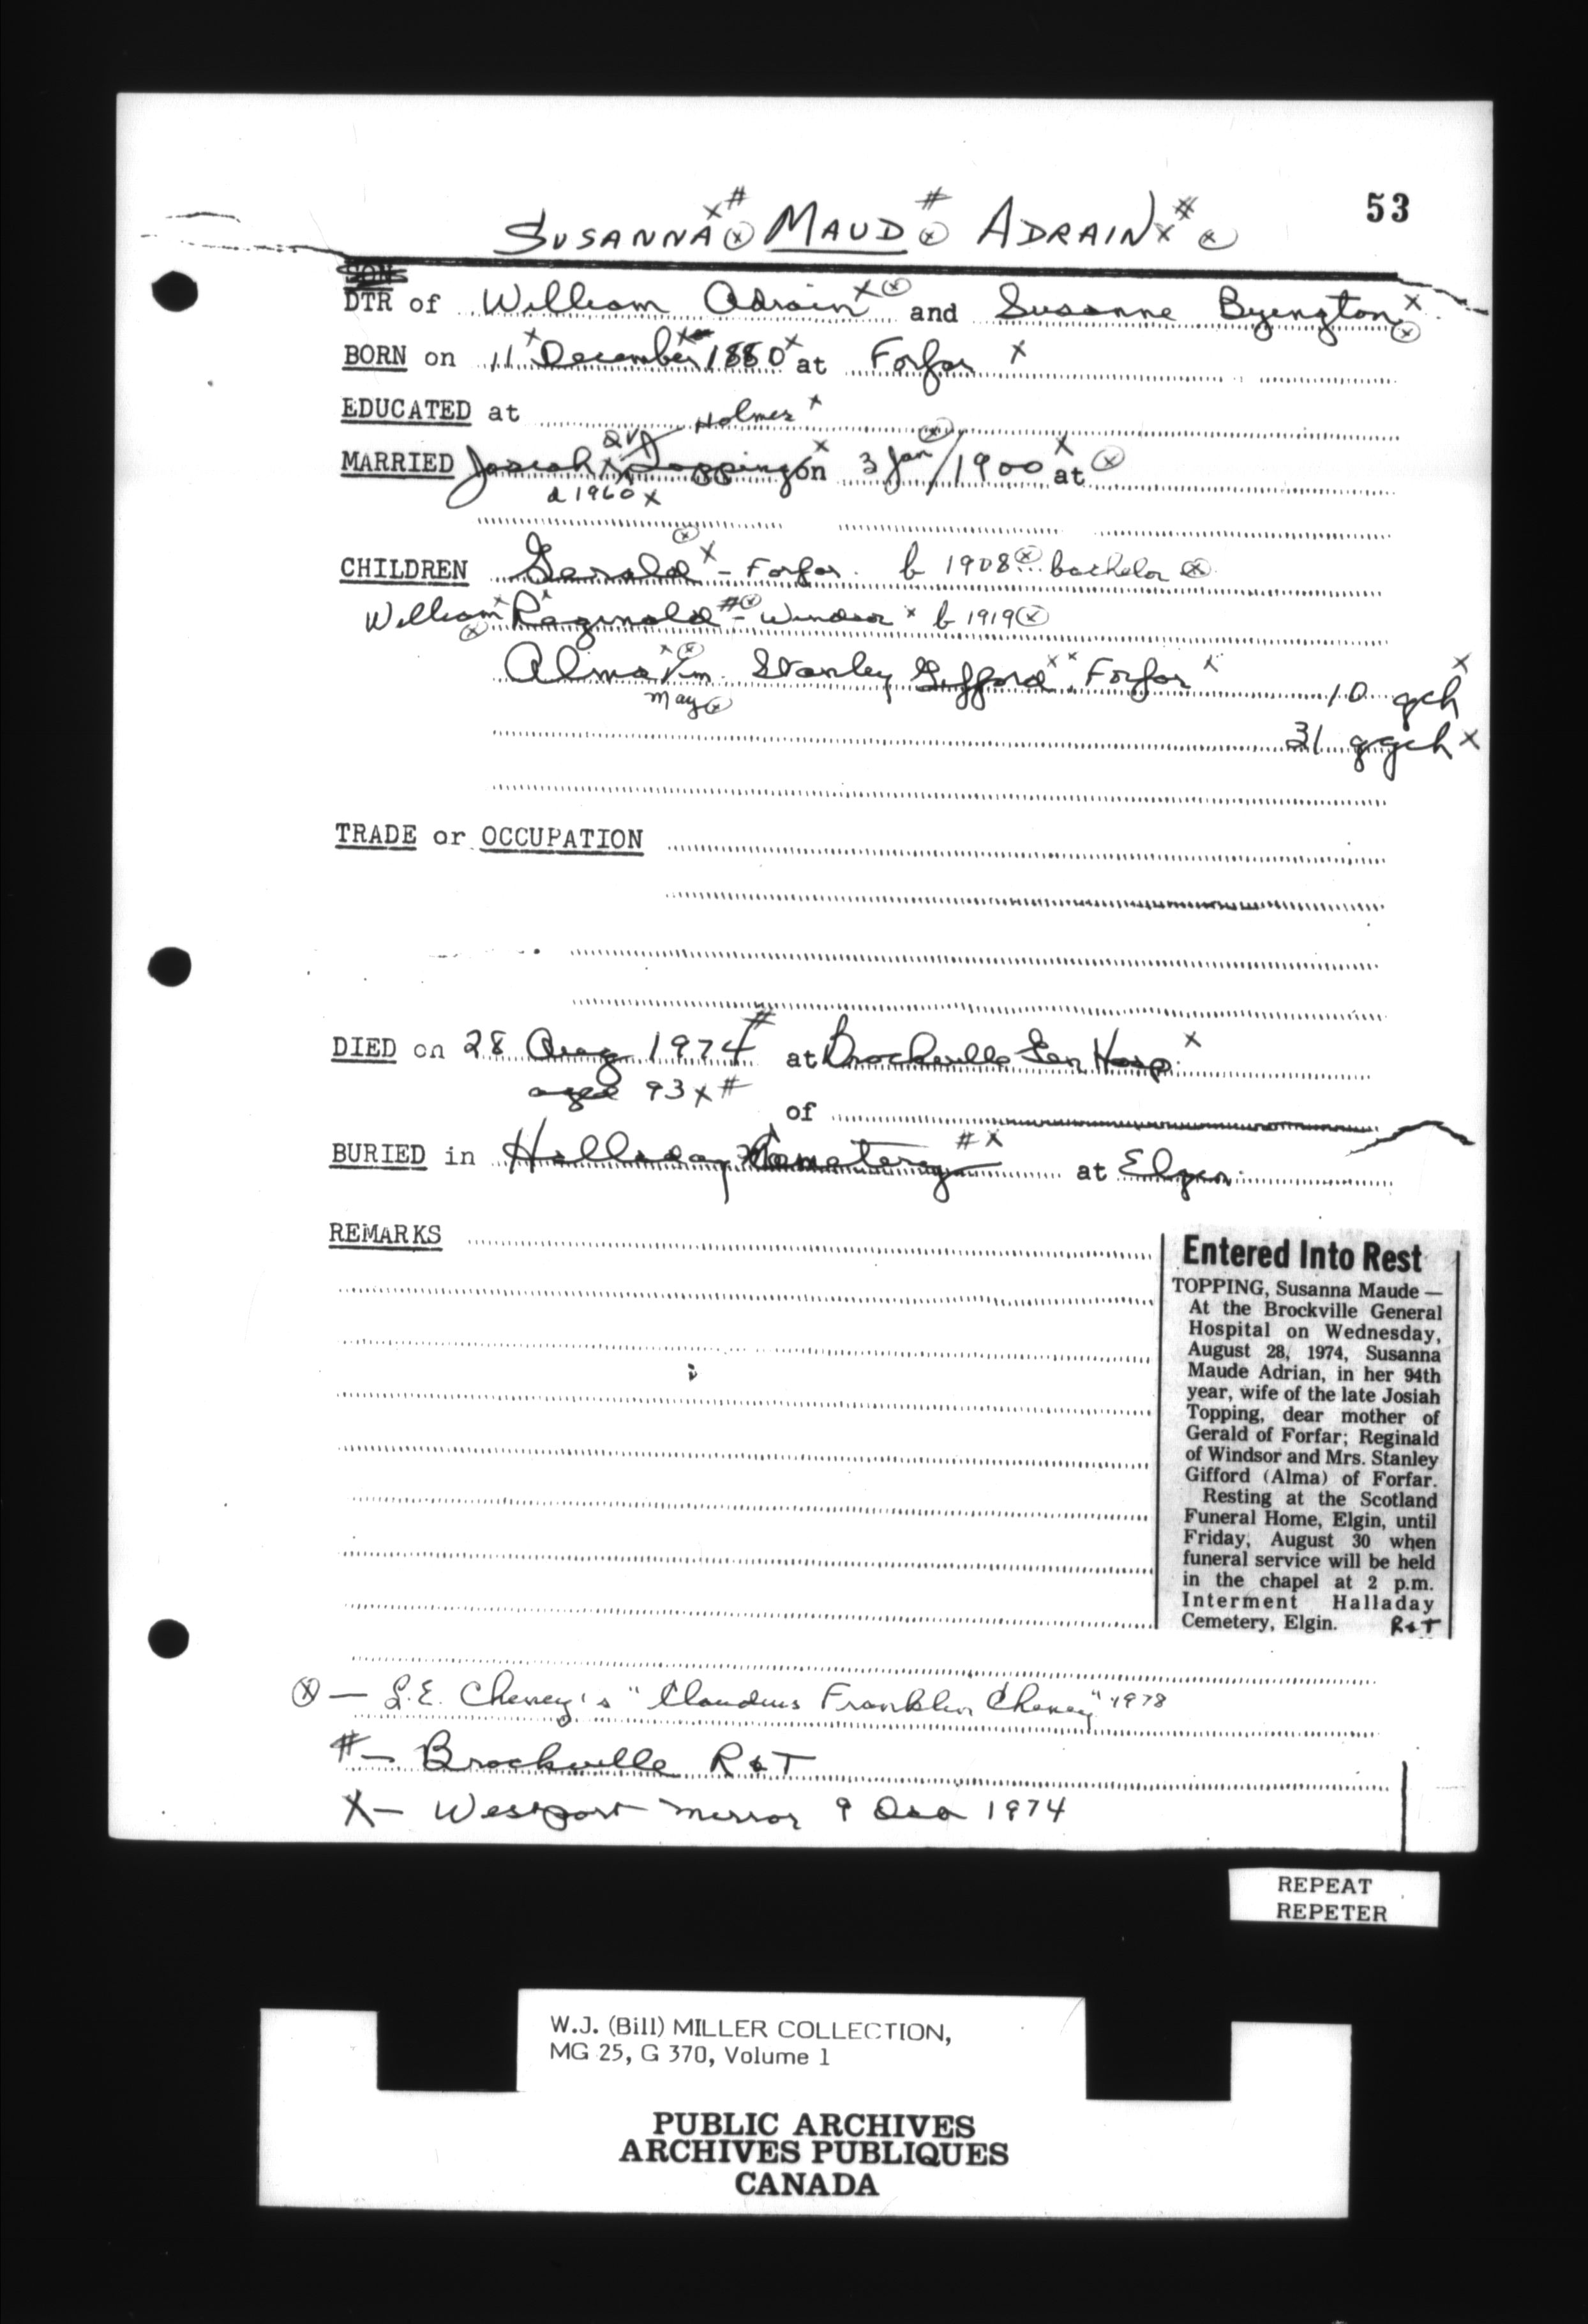 53
SUSANNA x # ⓧ MAUD # ⓧ ADRAIN x # ⓧ
SON
DTR of William Adrain x ⓧ and Susanne Byington x ⓧ
BORN on 11 x December x 1880 x at Forfar x
EDUCATED at
Holmes x
MARRIED Josiah Topping x on 3 Jan ⓧ / 1900 x at ⓧ
d 1960 x
CHILDREN Gerald ⓧ x - Forfar b 1908 ⓧ bachelor ⓧ
William x ⓧ Reginald x # ⓧ - Windsor x b 1919 ⓧ
Alma x ⓧ m. Stanley Gifford x x Forfar x 10 gch x
May ⓧ
31 ggch x
TRADE or OCCUPATION
DIED on 28 Aug 1974 # at Brockville Gen Hosp. x
aged 93 x #
of
BURIED in Halladay Cemetery # x at Elgin
REMARKS
Entered Into Rest
TOPPING, Susanna Maude —
At the Brockville General
Hospital on Wednesday,
August 28, 1974, Susanna
Maude Adrian, in her 94th
year, wife of the late Josiah
Topping, dear mother of
Gerald of Forfar; Reginald
of Windsor and Mrs. Stanley
Gifford (Alma) of Forfar.
Resting at the Scotland
Funeral Home, Elgin, until
Friday, August 30 when
funeral service will be held
in the chapel at 2 p.m.
Interment Halladay
Cemetery, Elgin. R&T
ⓧ — L.E. Cheney's "Claudius Franklin Cheney" 1978
# — Brockville R & T
X — Westport Mirror 9 1974
REPEAT
REPETER
W.J. (Bill) MILLER COLLECTION,
MG 25, G 370, Volume 1
PUBLIC ARCHIVES
ARCHIVES PUBLIQUES
CANADA